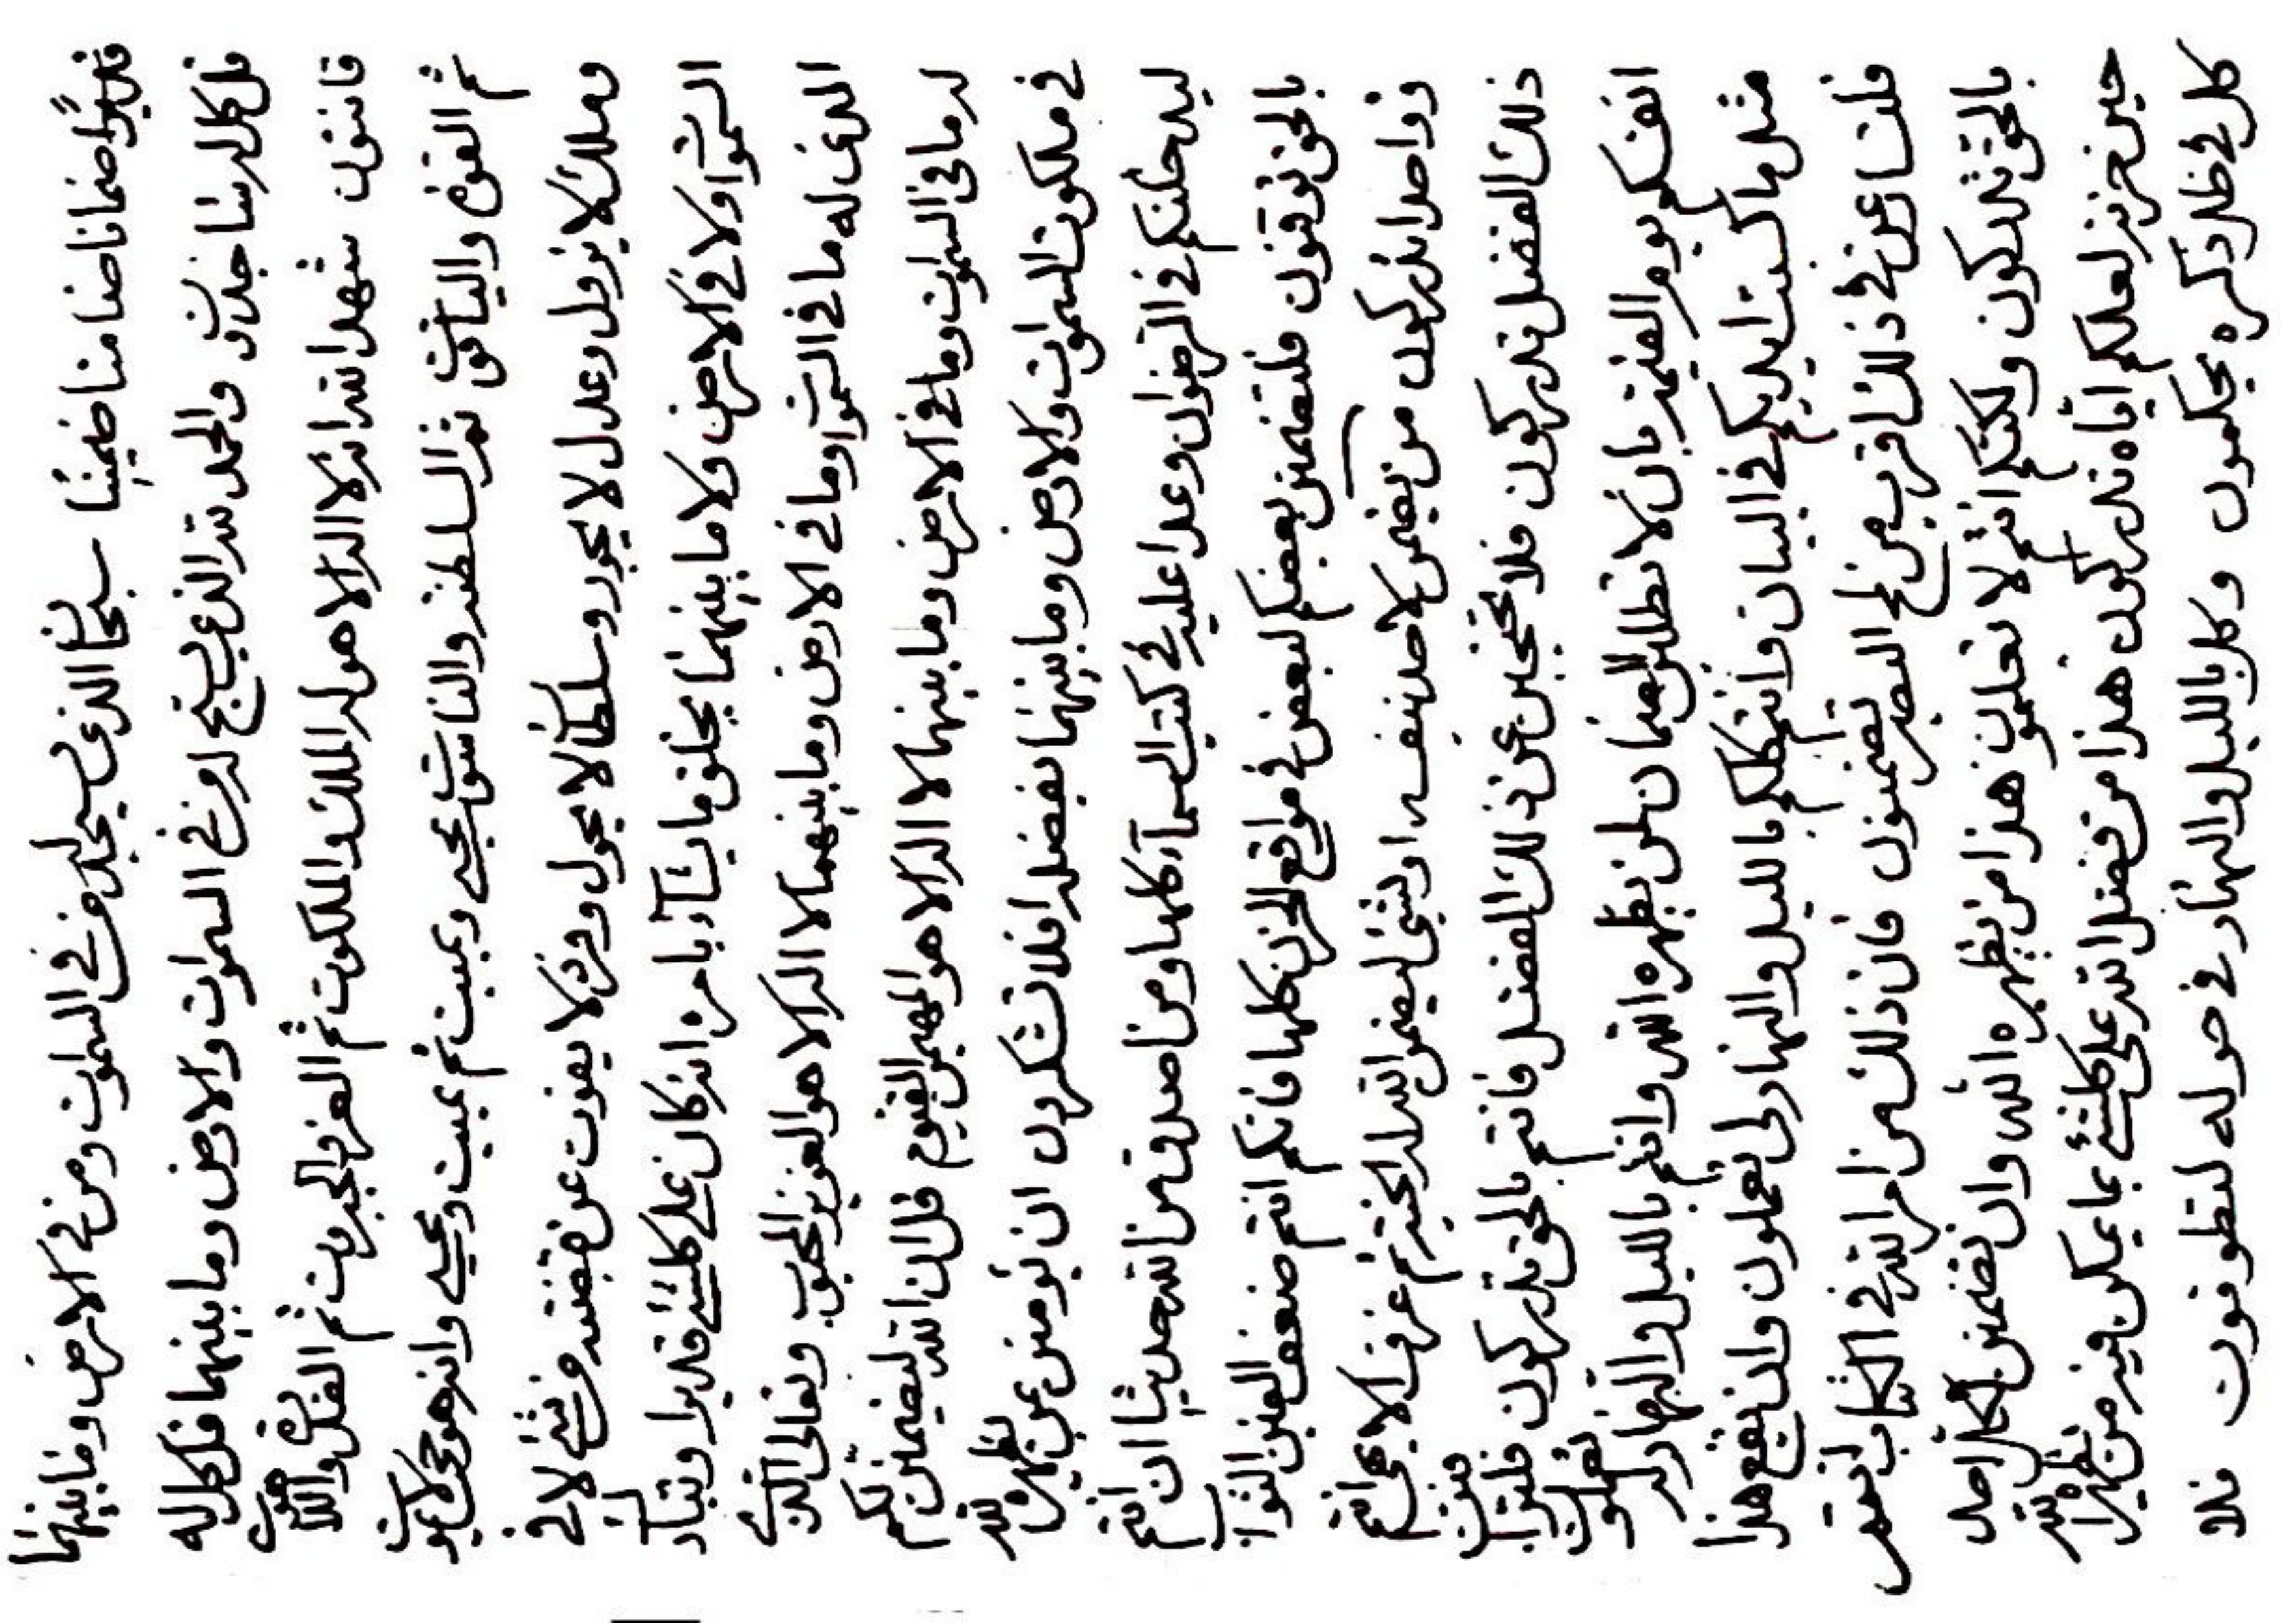 قديرًا ضمانا ضامنا ضمينا سبحان الذي يسجد له من في السموات ومن في الارض وما بينهما
قل كل له ساجدون والحمد لله الذي يسبح له من في السموات والارض وما بينهما قل كل له
قانتون شهد الله انه لا اله الا هو له الملك والملكوت ثم العز والجبروت ثم القدرة واللاهوت
ثم القوة والياقوت ثم السلطنة والناسوت يحيي ويميت ثم يميت ويحيي وانه هو حي لا يموت
وملك لا يزول وعدل لا يجور وسلطان لا يحول وفرد لا يفوت عن قبضته من شيء لا في
السموات ولا في الارض ولا ما بينهما يخلق ما يشآء بامره انه كان على كلشيء قديرا وتبارك
الذي له ما في السموات وما في الارض وما بينهما لا اله الا هو العزيز المحبوب وتعالى الذي
له ما في السموات وما في الارض وما بينهما لا اله الا هو المهيمن القيوم قل ان الله ليضمنن لكم
في ملكوت السموات والارض وما بينهما بفضله افلا تشكرون ان تؤمنن بمن يظهره الله
ليدخلنكم في الرضوان وعدا عليه في كتب السمآء كلها ومن اصدق من الله حديثا ان انتم
بالحق توقنون فلتضمنن بعضكم لبعض في مواقع الحزن كلها فانكم انتم ضعف العين الثواب
تدركون من يضمن لاحد نفسه او شيء ليضمن الله له الجنة ثم غرف الاعلى انتم
ذلك الفضل تدركون فلا تحتجبن عن ذلك الفضل فانتم بالحق تدركون
انفسكم يوم القيمة بان لا تطلبن الضمان لمن يظهره الله وانتم بالليل والنهار له
مثل ما كسبت ايديكم في البيان وانتم كلكم بالليل والنهار لي تعملون وان يقع هذا
قلت اعن في ذلك اقرب من لمح البصر تضمنون فان ذلك من امر الله في الكتاب
بالحق تدركون ولكنكم انتم لا تعلمون هذا من يظهره الله وان تضمنن لكل احد
حين حزنه لعلكم اياه تدركون هذا من فضل الله على كلشيء بما يمكن فيه من
كل في ظل ذكره يحكمون وكل بالليل والنهار في حوله ليطوفون فلا